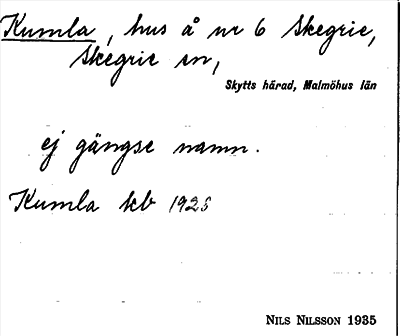 Kumla, hus å nr 6 Skegrie,
Skegrie sn,
Skytts härad, Malmöhus län
ej gängse namn.
Kumla kb 1928
NILS NILSSON 1935